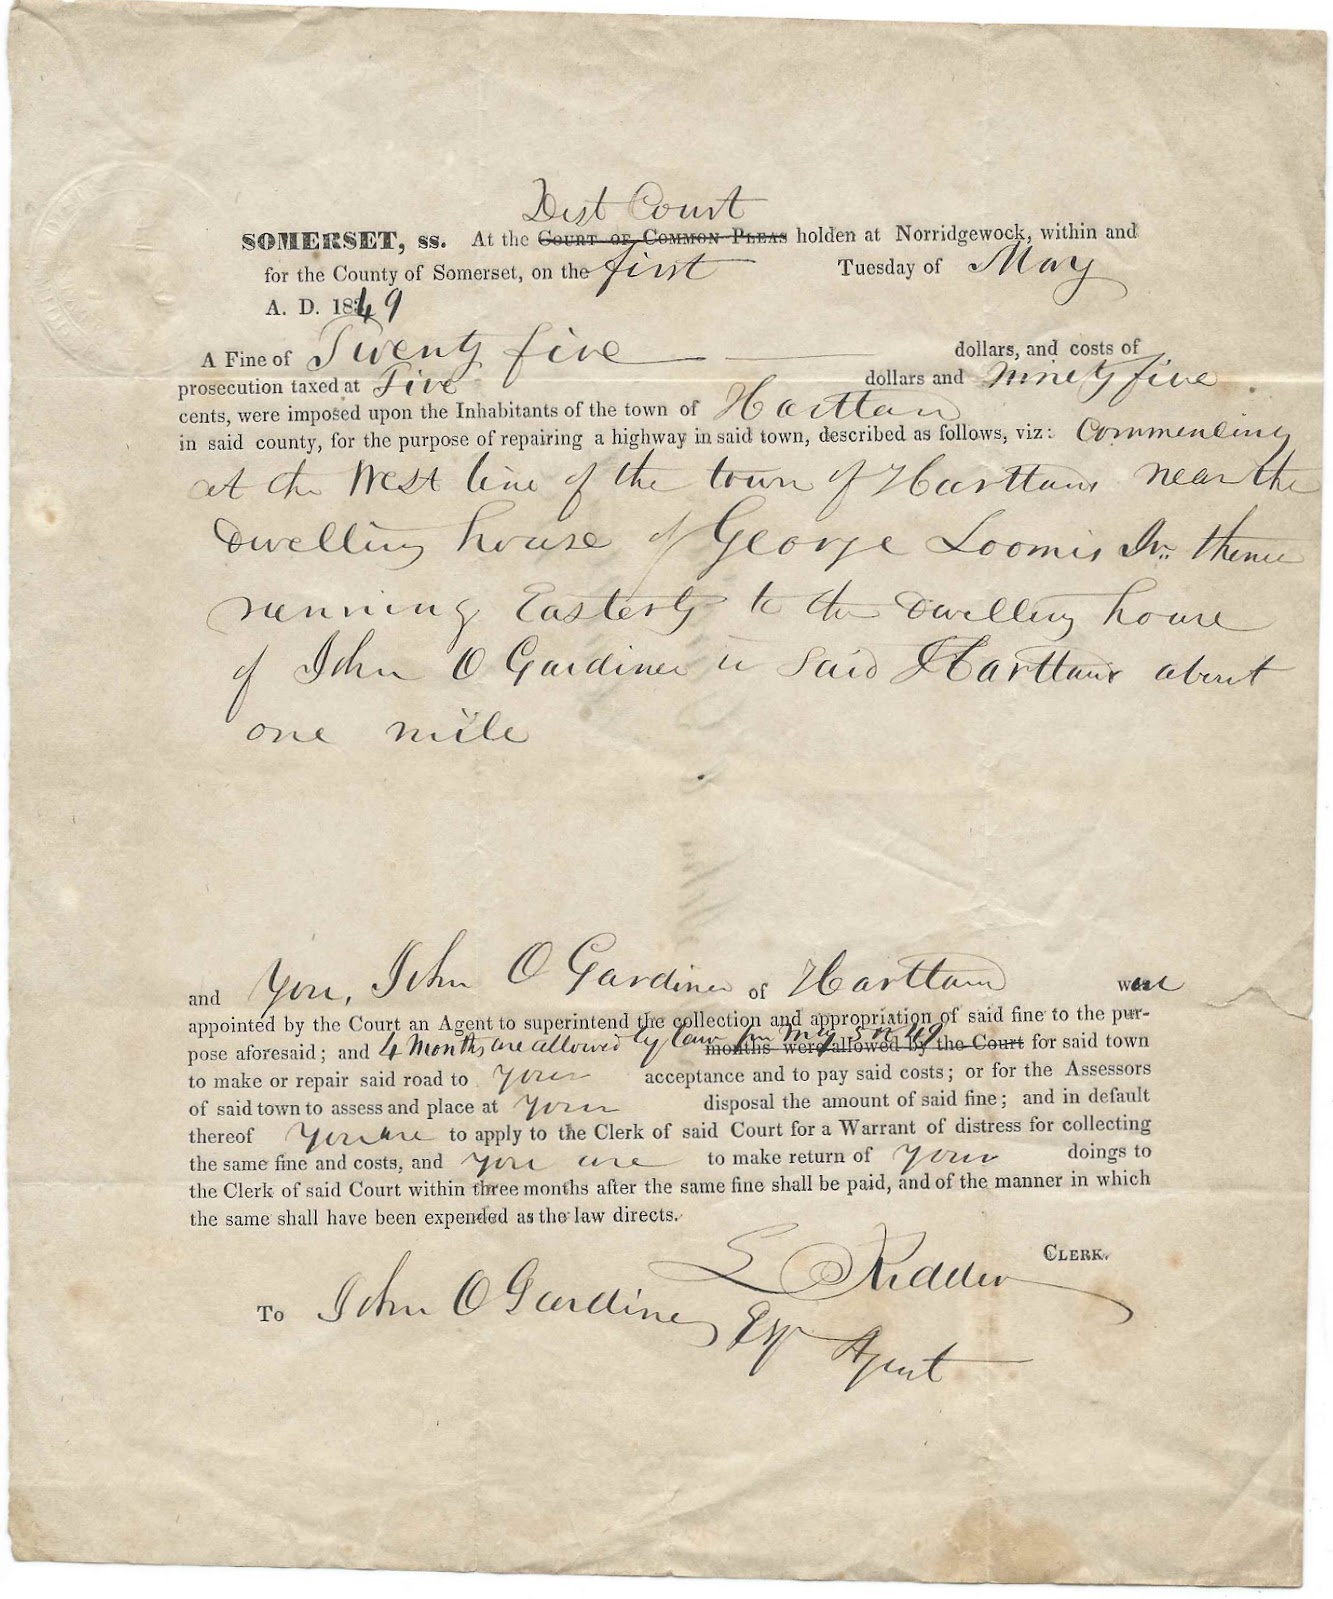 Dist Court
SOMERSET, ss. At the COURT OF COMMON PLEAS holden at Norridgewock, within and
for the County of Somerset, on the first Tuesday of May
A. D. 1849
A Fine of Twenty five dollars, and costs of
prosecution taxed at Five dollars and ninety five
cents, were imposed upon the Inhabitants of the town of Hartland
in said county, for the purpose of repairing a highway in said town, described as follows, viz: Commencing
at the West line of the town of Hartland near the
Dwelling house of George Loomis Jr. thence
running Easterly to the Dwelling house
of John O Gardiner in said Hartland about
one mile
and You, John O Gardiner of Hartland were
appointed by the Court an Agent to superintend the collection and appropriation of said fine to the pur-
pose aforesaid; and 4 Months are allowed by law fm May 49 months were allowed by the Court for said town
to make or repair said road to your acceptance and to pay said costs; or for the Assessors
of said town to assess and place at your disposal the amount of said fine; and in default
thereof You are to apply to the Clerk of said Court for a Warrant of distress for collecting
the same fine and costs, and you are to make return of your doings to
the Clerk of said Court within three months after the same fine shall be paid, and of the manner in which
the same shall have been expended as the law directs.
CLERK.
To John O Gardiner Esqr Agent